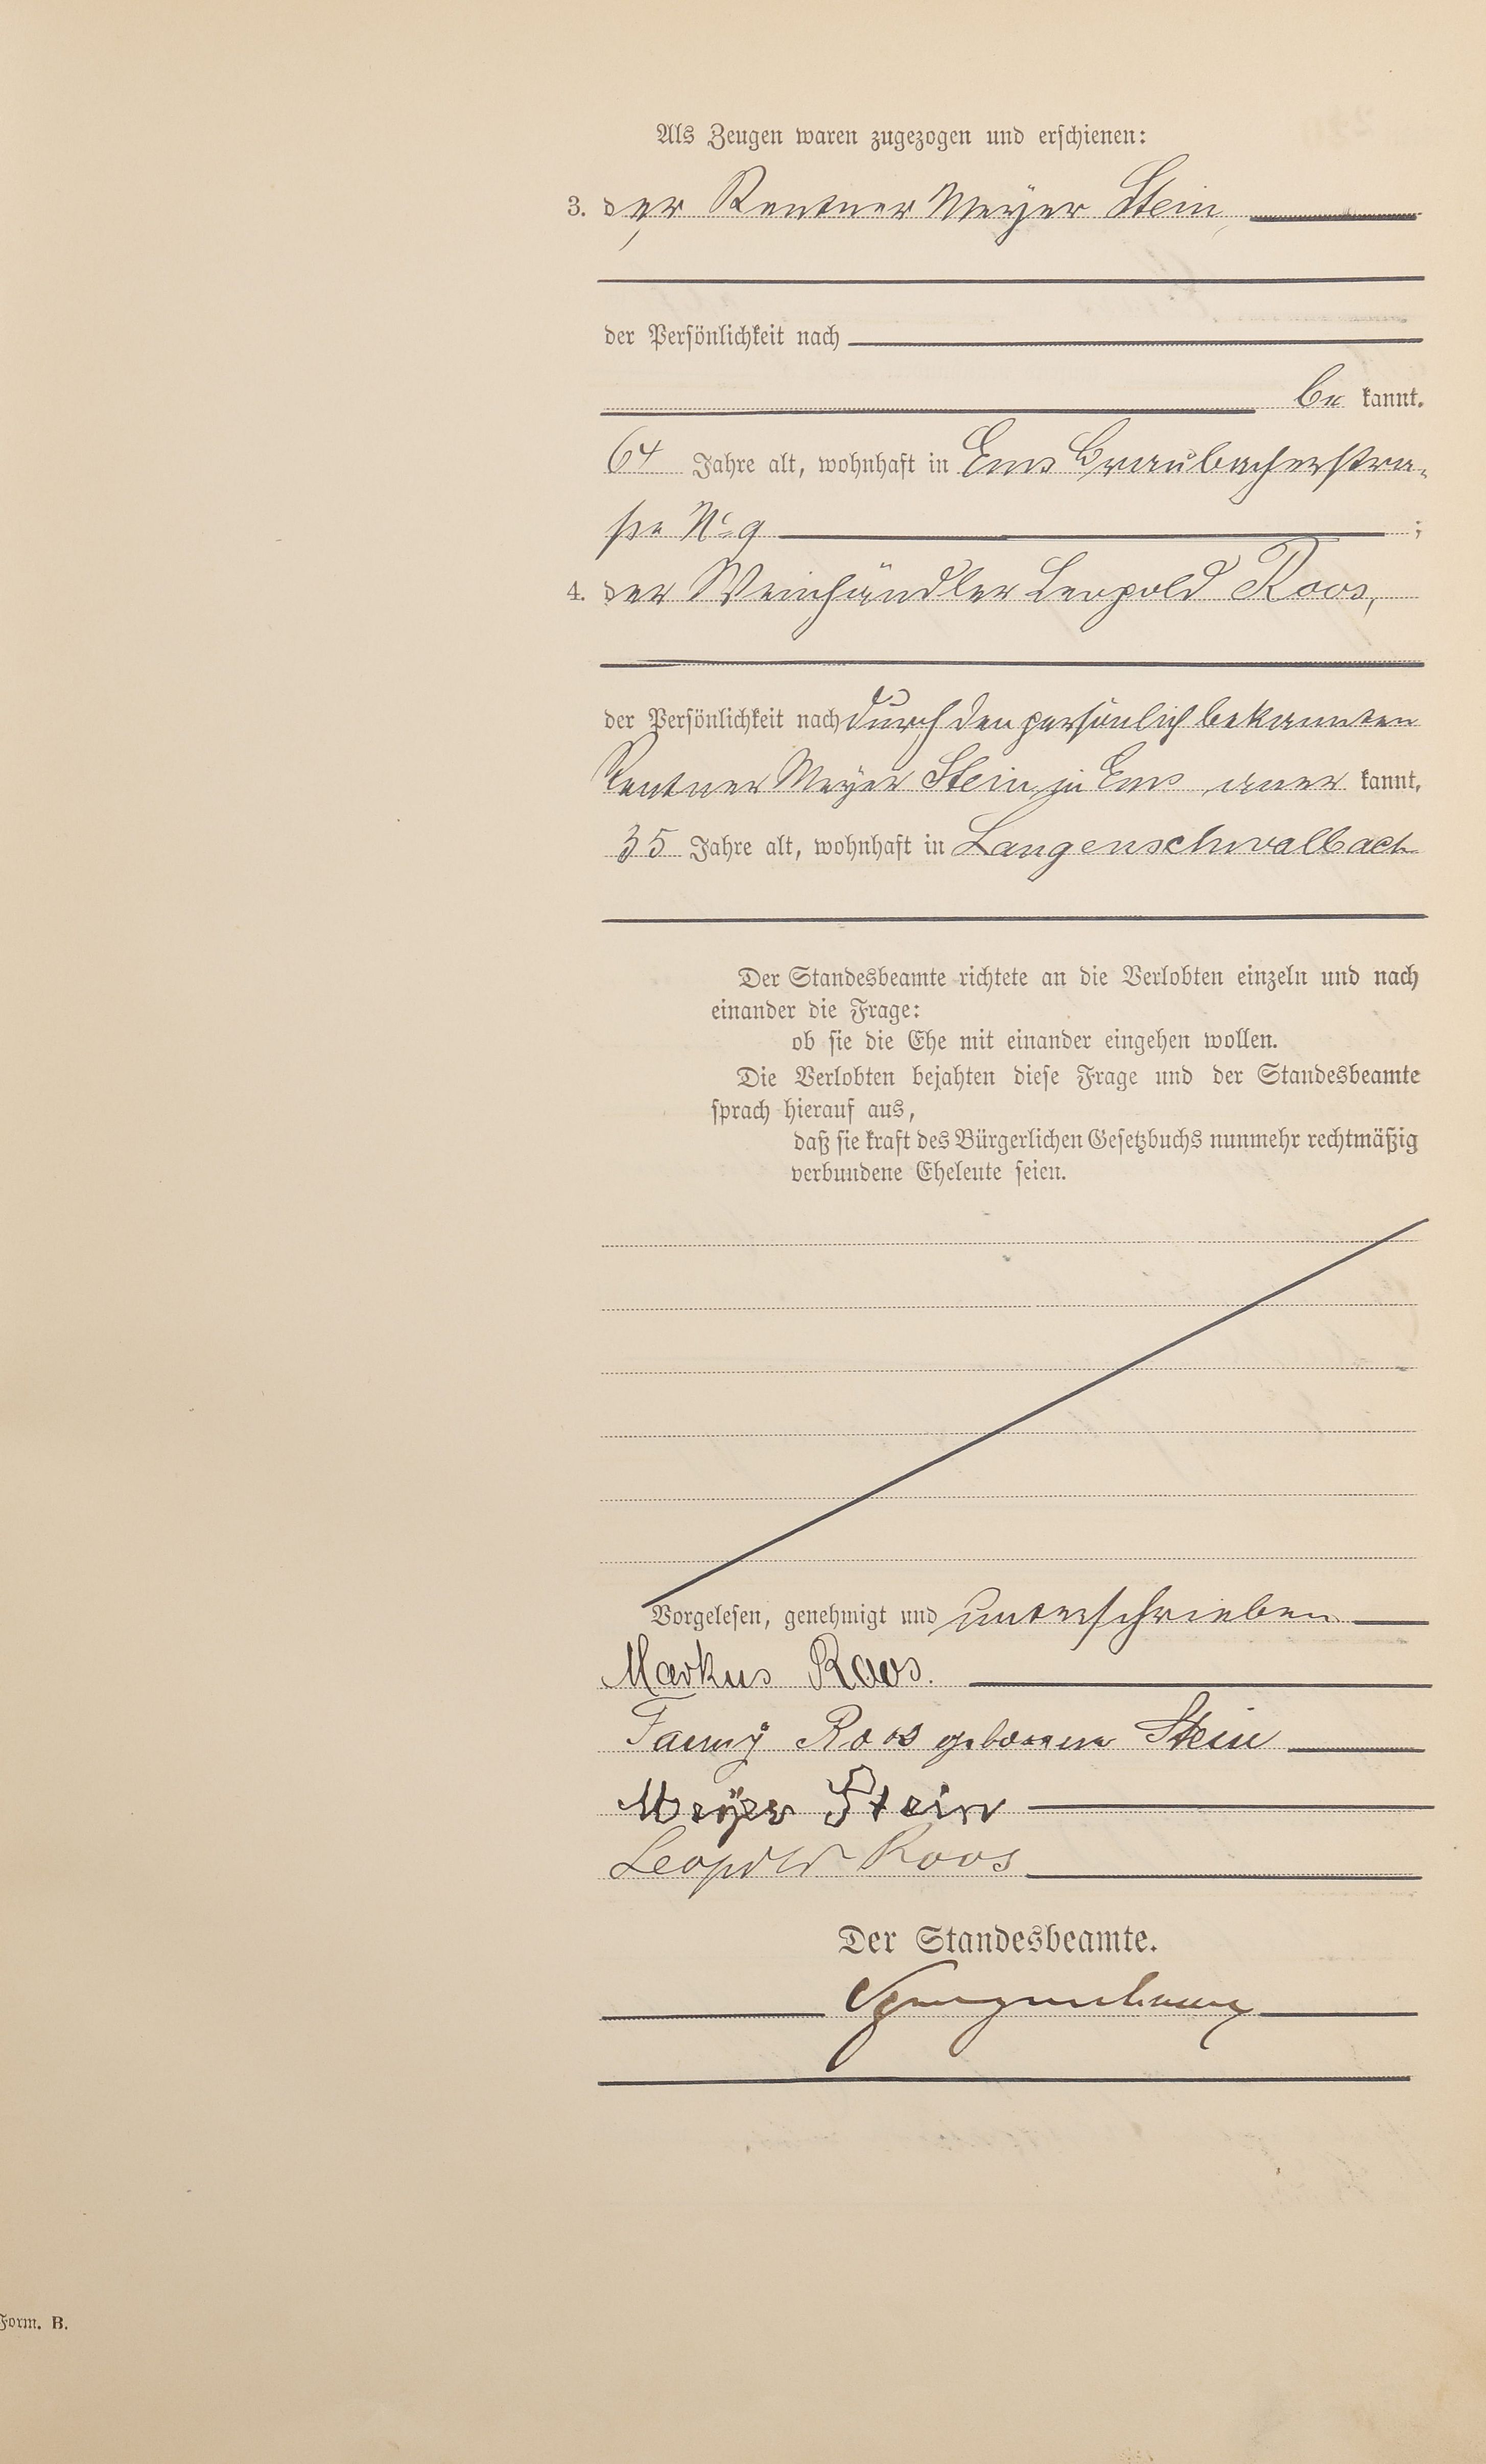 Als Zeugen waren zugezogen und erschienen:
3. der Rentner Meyer Stein,
der Persönlichkeit nach
be kannt,
64 Jahre alt, wohnhaft in Ems Braubacherstra-
ße No 9 ;
4. der Weinhändler Leopold Roos,
der Persönlichkeit nach durch den persönlich bekannten
Rentner Meyer Stein in Ems aner kannt,
35 Jahre alt, wohnhaft in Langenschwalbach
Der Standesbeamte richtete an die Verlobten einzeln und nach
einander die Frage:
ob sie die Ehe mit einander eingehen wollen.
Die Verlobten bejahten diese Frage und der Standesbeamte
sprach hierauf aus,
daß sie kraft des Bürgerlichen Gesetzbuchs nunmehr rechtmäßig
verbundene Eheleute seien.
Vorgelesen, genehmigt und unterschrieben
Markus Roos.
Fanny Roos geborene Stein
Meyer Stein
Leopold Roos
Der Standesbeamte.
Form. B.